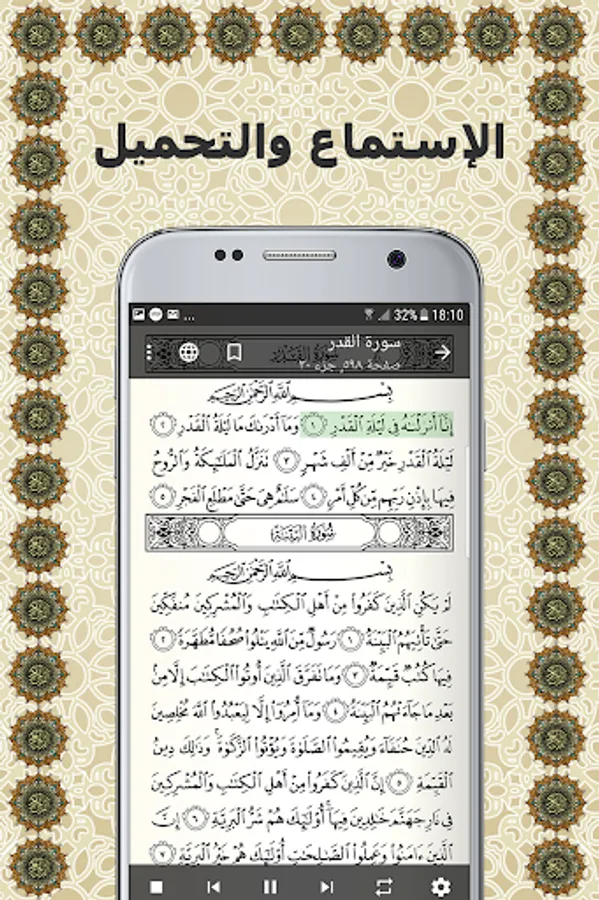 الإستماع والتحميل
... 32% 18:10
سورة القدر
صفحة ٥٩٨, جزء ٣٠
بِسْمِ ٱللَّهِ ٱلرَّحْمَٰنِ ٱلرَّحِيمِ
إِنَّآ أَنزَلْنَٰهُ فِى لَيْلَةِ ٱلْقَدْرِ ١ وَمَآ أَدْرَىٰكَ مَا لَيْلَةُ ٱلْقَدْرِ ٢
لَيْلَةُ ٱلْقَدْرِ خَيْرٌ مِّنْ أَلْفِ شَهْرٍ ٣ تَنَزَّلُ ٱلْمَلَٰٓئِكَةُ وَٱلرُّوحُ
فِيهَا بِإِذْنِ رَبِّهِم مِّن كُلِّ أَمْرٍ ٤ سَلَٰمٌ هِىَ حَتَّىٰ مَطْلَعِ ٱلْفَجْرِ ٥
سُورَةُ ٱلْبَيِّنَةِ
بِسْمِ ٱللَّهِ ٱلرَّحْمَٰنِ ٱلرَّحِيمِ
لَمْ يَكُنِ ٱلَّذِينَ كَفَرُوا۟ مِنْ أَهْلِ ٱلْكِتَٰبِ وَٱلْمُشْرِكِينَ مُنفَكِّينَ
حَتَّىٰ تَأْتِيَهُمُ ٱلْبَيِّنَةُ ١ رَسُولٌ مِّنَ ٱللَّهِ يَتْلُوا۟ صُحُفًا مُّطَهَّرَةً ٢
فِيهَا كُتُبٌ قَيِّمَةٌ ٣ وَمَا تَفَرَّقَ ٱلَّذِينَ أُوتُوا۟ ٱلْكِتَٰبَ إِلَّا مِنۢ
بَعْدِ مَا جَآءَتْهُمُ ٱلْبَيِّنَةُ ٤ وَمَآ أُمِرُوٓا۟ إِلَّا لِيَعْبُدُوا۟ ٱللَّهَ مُخْلِصِينَ
لَهُ ٱلدِّينَ حُنَفَآءَ وَيُقِيمُوا۟ ٱلصَّلَوٰةَ وَيُؤْتُوا۟ ٱلزَّكَوٰةَ ۚ وَذَٰلِكَ دِينُ
ٱلْقَيِّمَةِ ٥ إِنَّ ٱلَّذِينَ كَفَرُوا۟ مِنْ أَهْلِ ٱلْكِتَٰبِ وَٱلْمُشْرِكِينَ
فِى نَارِ جَهَنَّمَ خَٰلِدِينَ فِيهَآ ۚ أُو۟لَٰٓئِكَ هُمْ شَرُّ ٱلْبَرِيَّةِ ٦ إِنَّ
ٱلَّذِينَ ءَامَنُوا۟ وَعَمِلُوا۟ ٱلصَّٰلِحَٰتِ أُو۟لَٰٓئِكَ هُمْ خَيْرُ ٱلْبَرِيَّةِ ٧